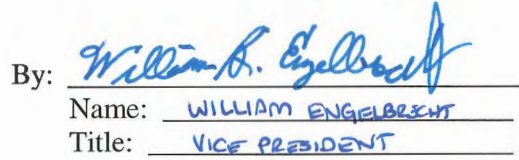 By: William R. Engelbrecht
Name: WILLIAM ENGELBRECHT
Title: VICE PRESIDENT